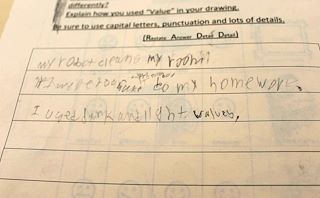 differently?
Explain how you used "Value" in your drawing.
Be sure to use capital letters, punctuation and lots of details.
(Restate Answer Detail Detail)
my robot cleans my room!
do my homework.
I used dark and light values.